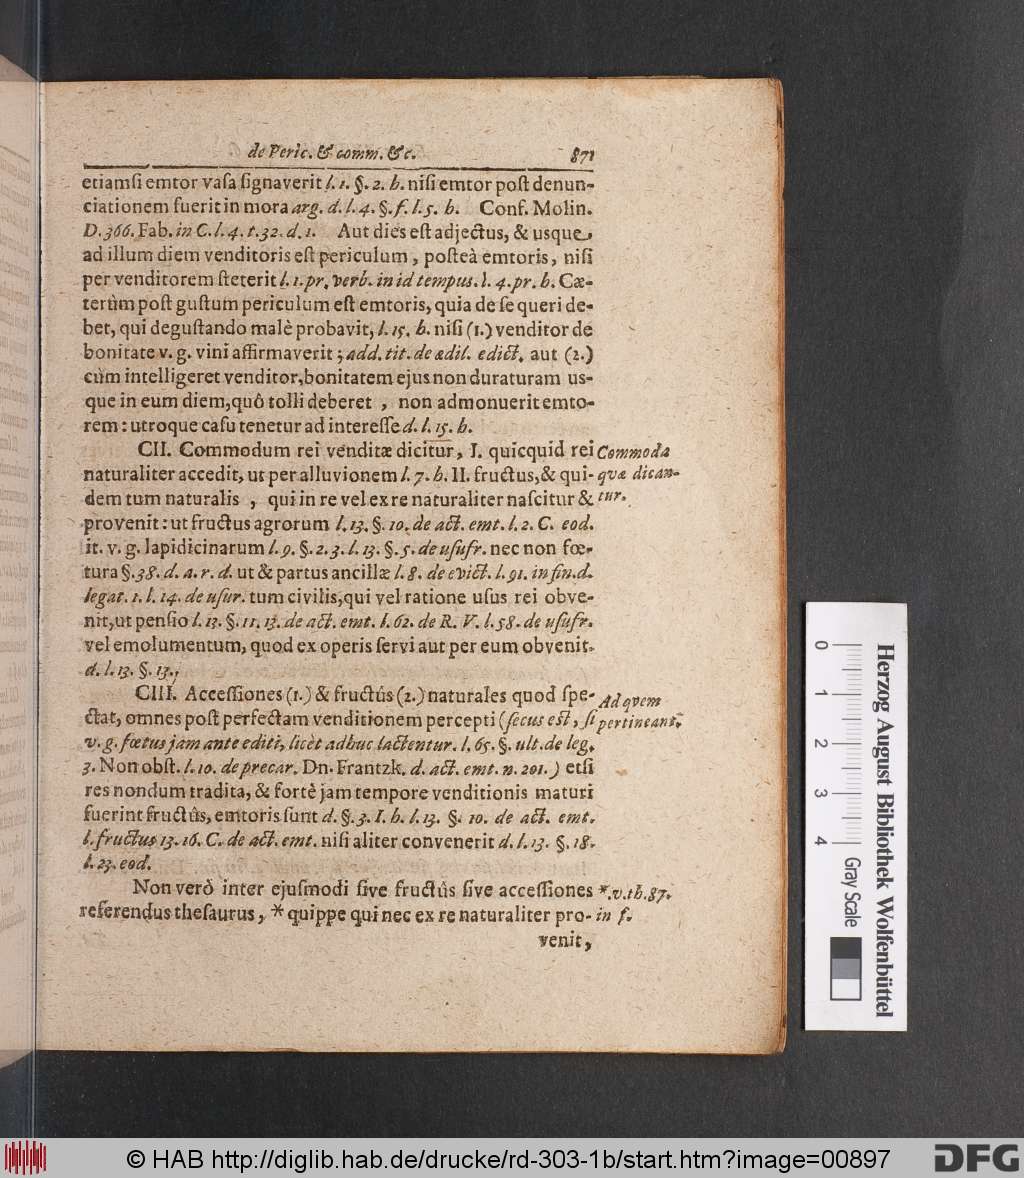 de Peric. & comm. &c. 871
etiamſi emtor vaſa ſignaverit l. 1. §. 2. h. niſi emtor poſt denun-
ciationem fuerit in mora arg. d. l. 4. §. f. l. 5. h. Conf. Molin.
D. 366. Fab. in C. l. 4. t. 32. d. 1. Aut dies eſt adjectus, & usque
ad illum diem venditoris eſt periculum, poſteà emtoris, niſi
per venditorem ſteterit l. 1. pr. verb. in id tempus. l. 4. pr. h. Cæ-
terùm poſt guſtum periculum eſt emtoris, quia de ſe queri de-
bet, qui deguſtando malè probavit, l. 15. h. niſi (1.) venditor de
bonitate v. g. vini affirmaverit; add. tit. de ædil. edict. aut (2.)
cùm intelligeret venditor, bonitatem ejus non duraturam us-
que in eum diem, quô tolli deberet, non admonuerit emto-
rem: utroque caſu tenetur ad intereſſe d. l. 15. h.
CII. Commodum rei venditæ dicitur, I. quicquid rei
naturaliter accedit, ut per alluvionem l. 7. h. II. fructus, & qui-
dem tum naturalis, qui in re vel ex re naturaliter naſcitur &
provenit: ut fructus agrorum l. 13. §. 10. de act. emt. l. 2. C. eod.
it. v. g. lapidicinarum l. 9. §. 2. 3. l. 13. §. 5. de uſufr. nec non fœ-
tura §. 38. d. a. r. d. ut & partus ancillæ l. 8. de evict. l. 91. in fin. d.
legat. 1. l. 14. de uſur. tum civilis, qui vel ratione uſus rei obve-
nit, ut penſio l. 13. §. 11. 13. de act. emt. l. 62. de R. V. l. 58. de uſufr.
vel emolumentum, quod ex operis ſervi aut per eum obvenit.
d. l. 13. §. 13.
Commoda
quæ dican-
tur.
CIII. Acceſſiones (1.) & fructûs (2.) naturales quod ſpe-
ctat, omnes poſt perfectam venditionem percepti (ſecus eſt, ſi
v. g. fœtus jam ante editi, licèt adhuc lactentur. l. 65. §. ult. de leg.
3. Non obſt. l. 10. de precar. Dn. Frantzk. d. act. emt. n. 201.) etſi
res nondum tradita, & fortè jam tempore venditionis maturi
fuerint fructûs, emtoris ſunt d. §. 3. I. h. l. 13. §. 10. de act. emt.
l. fructus 13. 16. C. de act. emt. niſi aliter convenerit d. l. 13. §. 18.
l. 23. eod.
Ad qvem
pertineant.
Non verò inter ejuſmodi ſive fructûs ſive acceſſiones
referendus theſaurus, * quippe qui nec ex re naturaliter pro-
venit,
*. v. th. 87.
in f.
0 1 2 3 4
Gray Scale
Herzog August Bibliothek Wolfenbüttel
© HAB http://diglib.hab.de/drucke/rd-303-1b/start.htm?image=00897
DFG